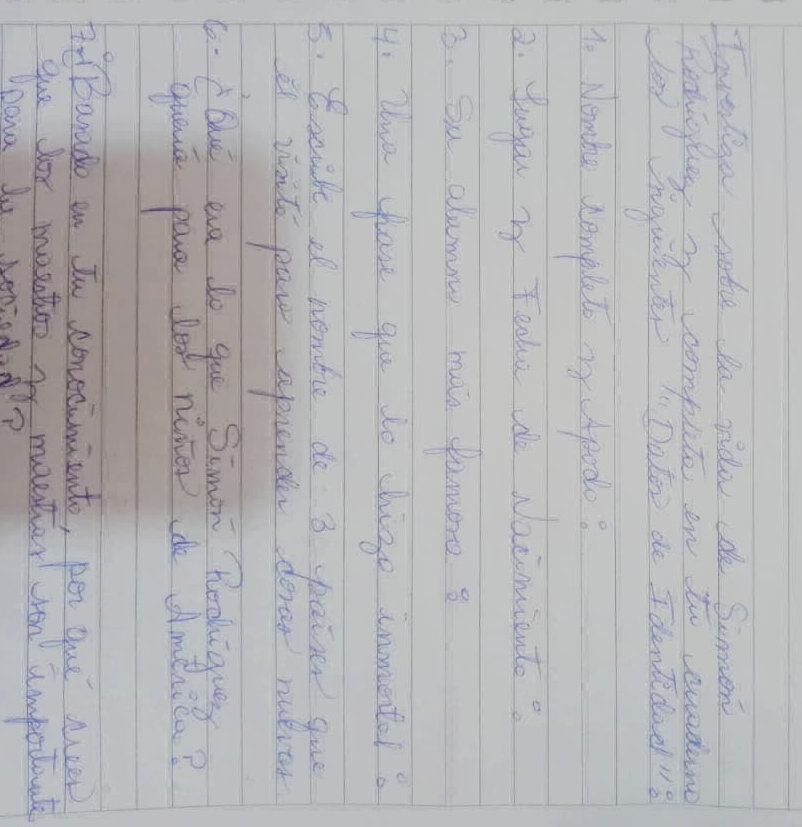 Investiga sobre la vida de Simón
Rodríguez y completa en tu cuaderno
los siguientes "Datos de Identidad":
1. Nombre completo y Apodo:
2. Lugar y Fecha de Nacimiento:
3. Su alumno más famoso:
4. Una frase que lo hizo inmortal:
5. Escribe el nombre de 3 países que
él visitó para aprender cosas nuevas
6.- ¿Qué era lo que Simón Rodríguez
quería para los niños de América?
7. ¿Basado en tu conocimiento, por qué crees
que los maestros y maestras son importante
para la sociedad?